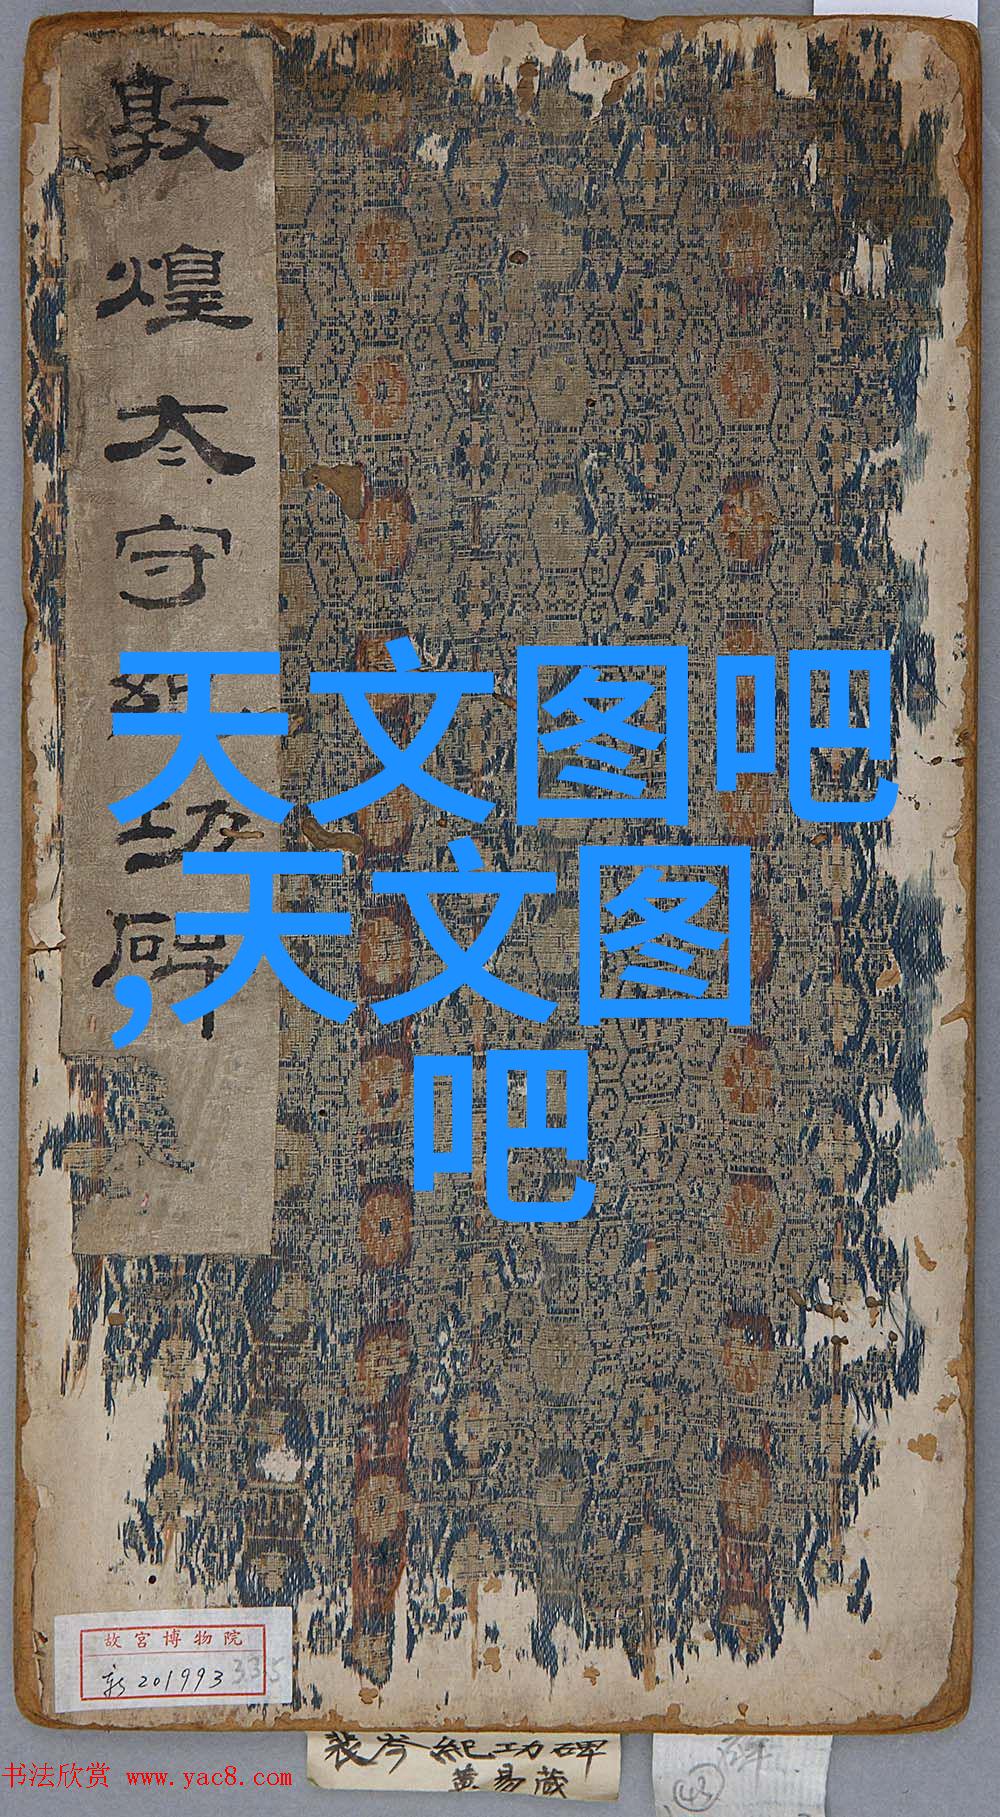 敦煌太守紀功碑
天文图吧
,天文图
吧
故宫博物院
新201993
335
裴岑紀功碑
黄易藏
43
书法欣赏 www.yac8.com